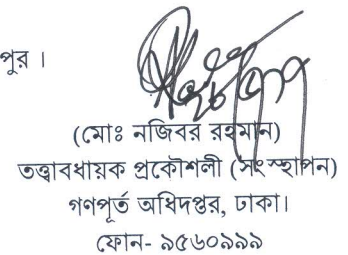 পুর ।
(মোঃ নজিবর রহমান)
তত্ত্বাবধায়ক প্রকৌশলী (সংস্থাপন)
গণপূর্ত অধিদপ্তর, ঢাকা।
ফোন- ৯৫৬০৯৯৯